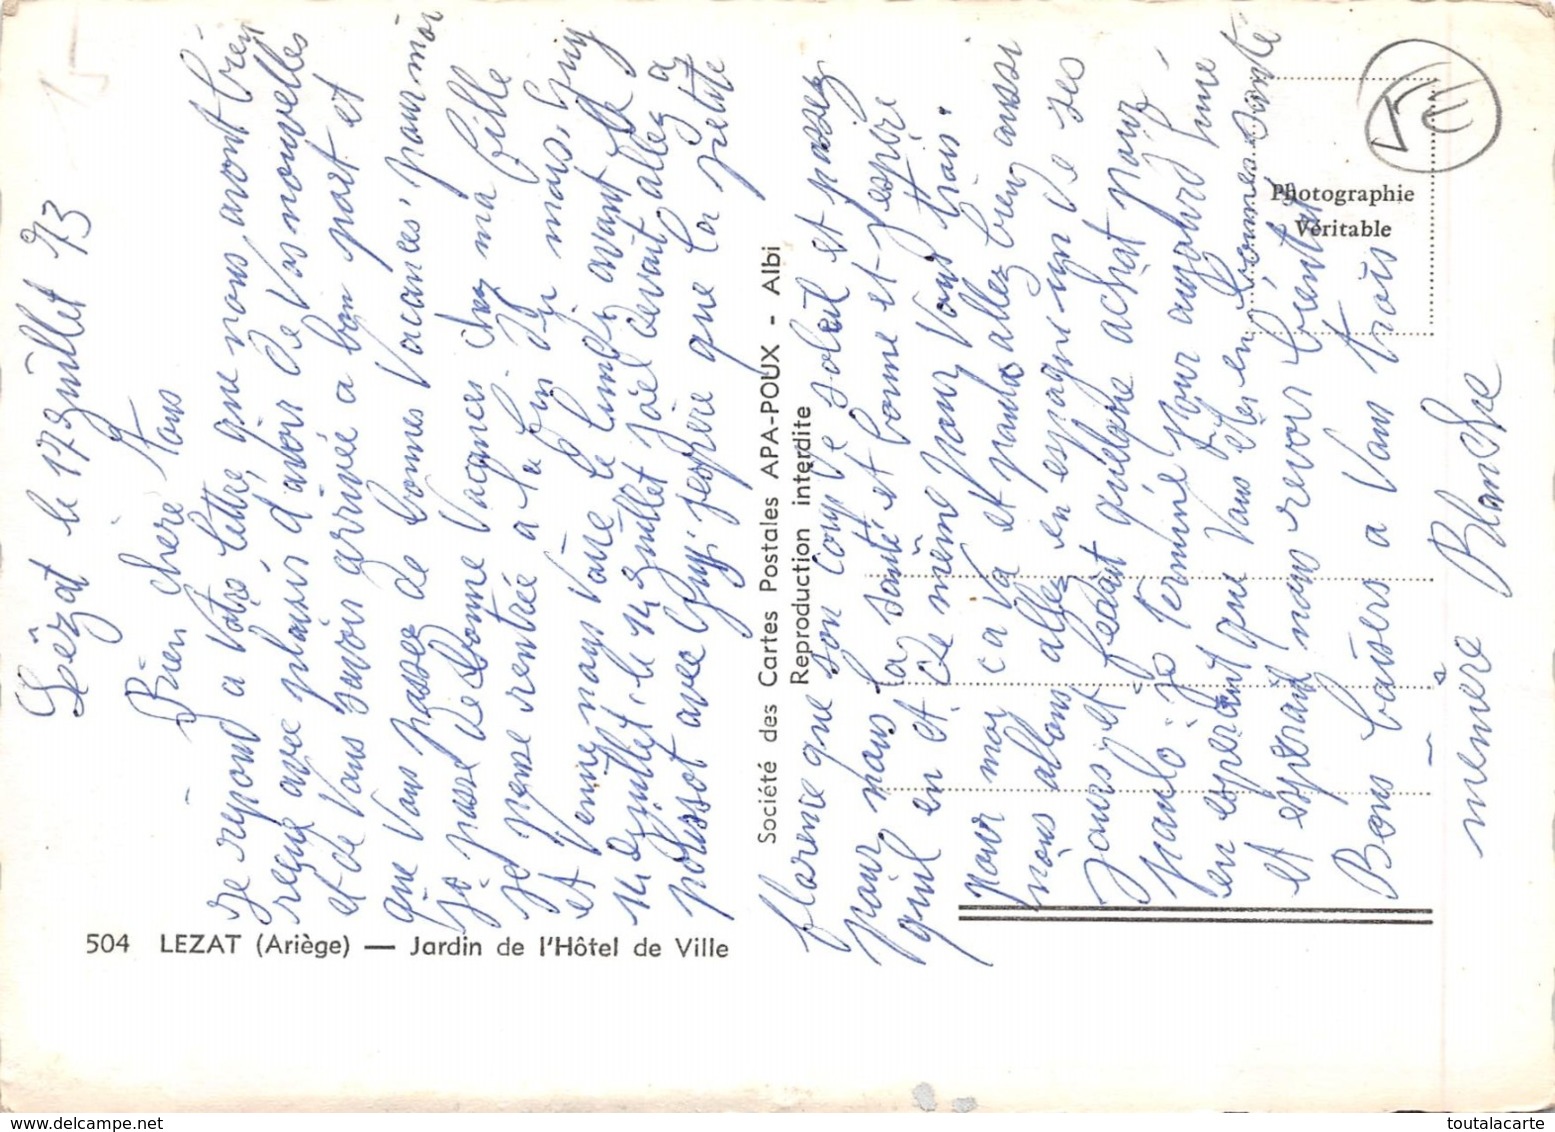 Lézat le 17 Juillet 73
Bien chère tous
je repond a votre lettre, que nous avont bien
reçue avec plaisir d'avoir de vos nouvelles
et de vous savoir arrivé a bon port et
que vous passez de bonnes vacances, pour moi
je passe de bonne vacances chez ma fille
je pense rentrée a la fin du mois, Guy
et venir nous voire le lundi avant le
14 Juillet, le 14 Juillet joël devait allez a
avec Guy, jespère que la petite
florence que son coup de soleil et passez
pour nous la santé et bonne et jespère
quil en et de même pour vous trois.
pour moi ca va et allez bien aussi
nous allons allez en espagne un de ses
jours et feront quelque achat pour
je terminé pour aujourd hui me
en esperant que vous etes en bonnes santé
et esperant nous revoir bientot
Bons baisers a vous trois
mémère Blanche
504 LEZAT (Ariège) — Jardin de l'Hôtel de Ville
Société des Cartes Postales APA-POUX - Albi
Reproduction interdite
Photographie
Véritable
15
toutalacarte